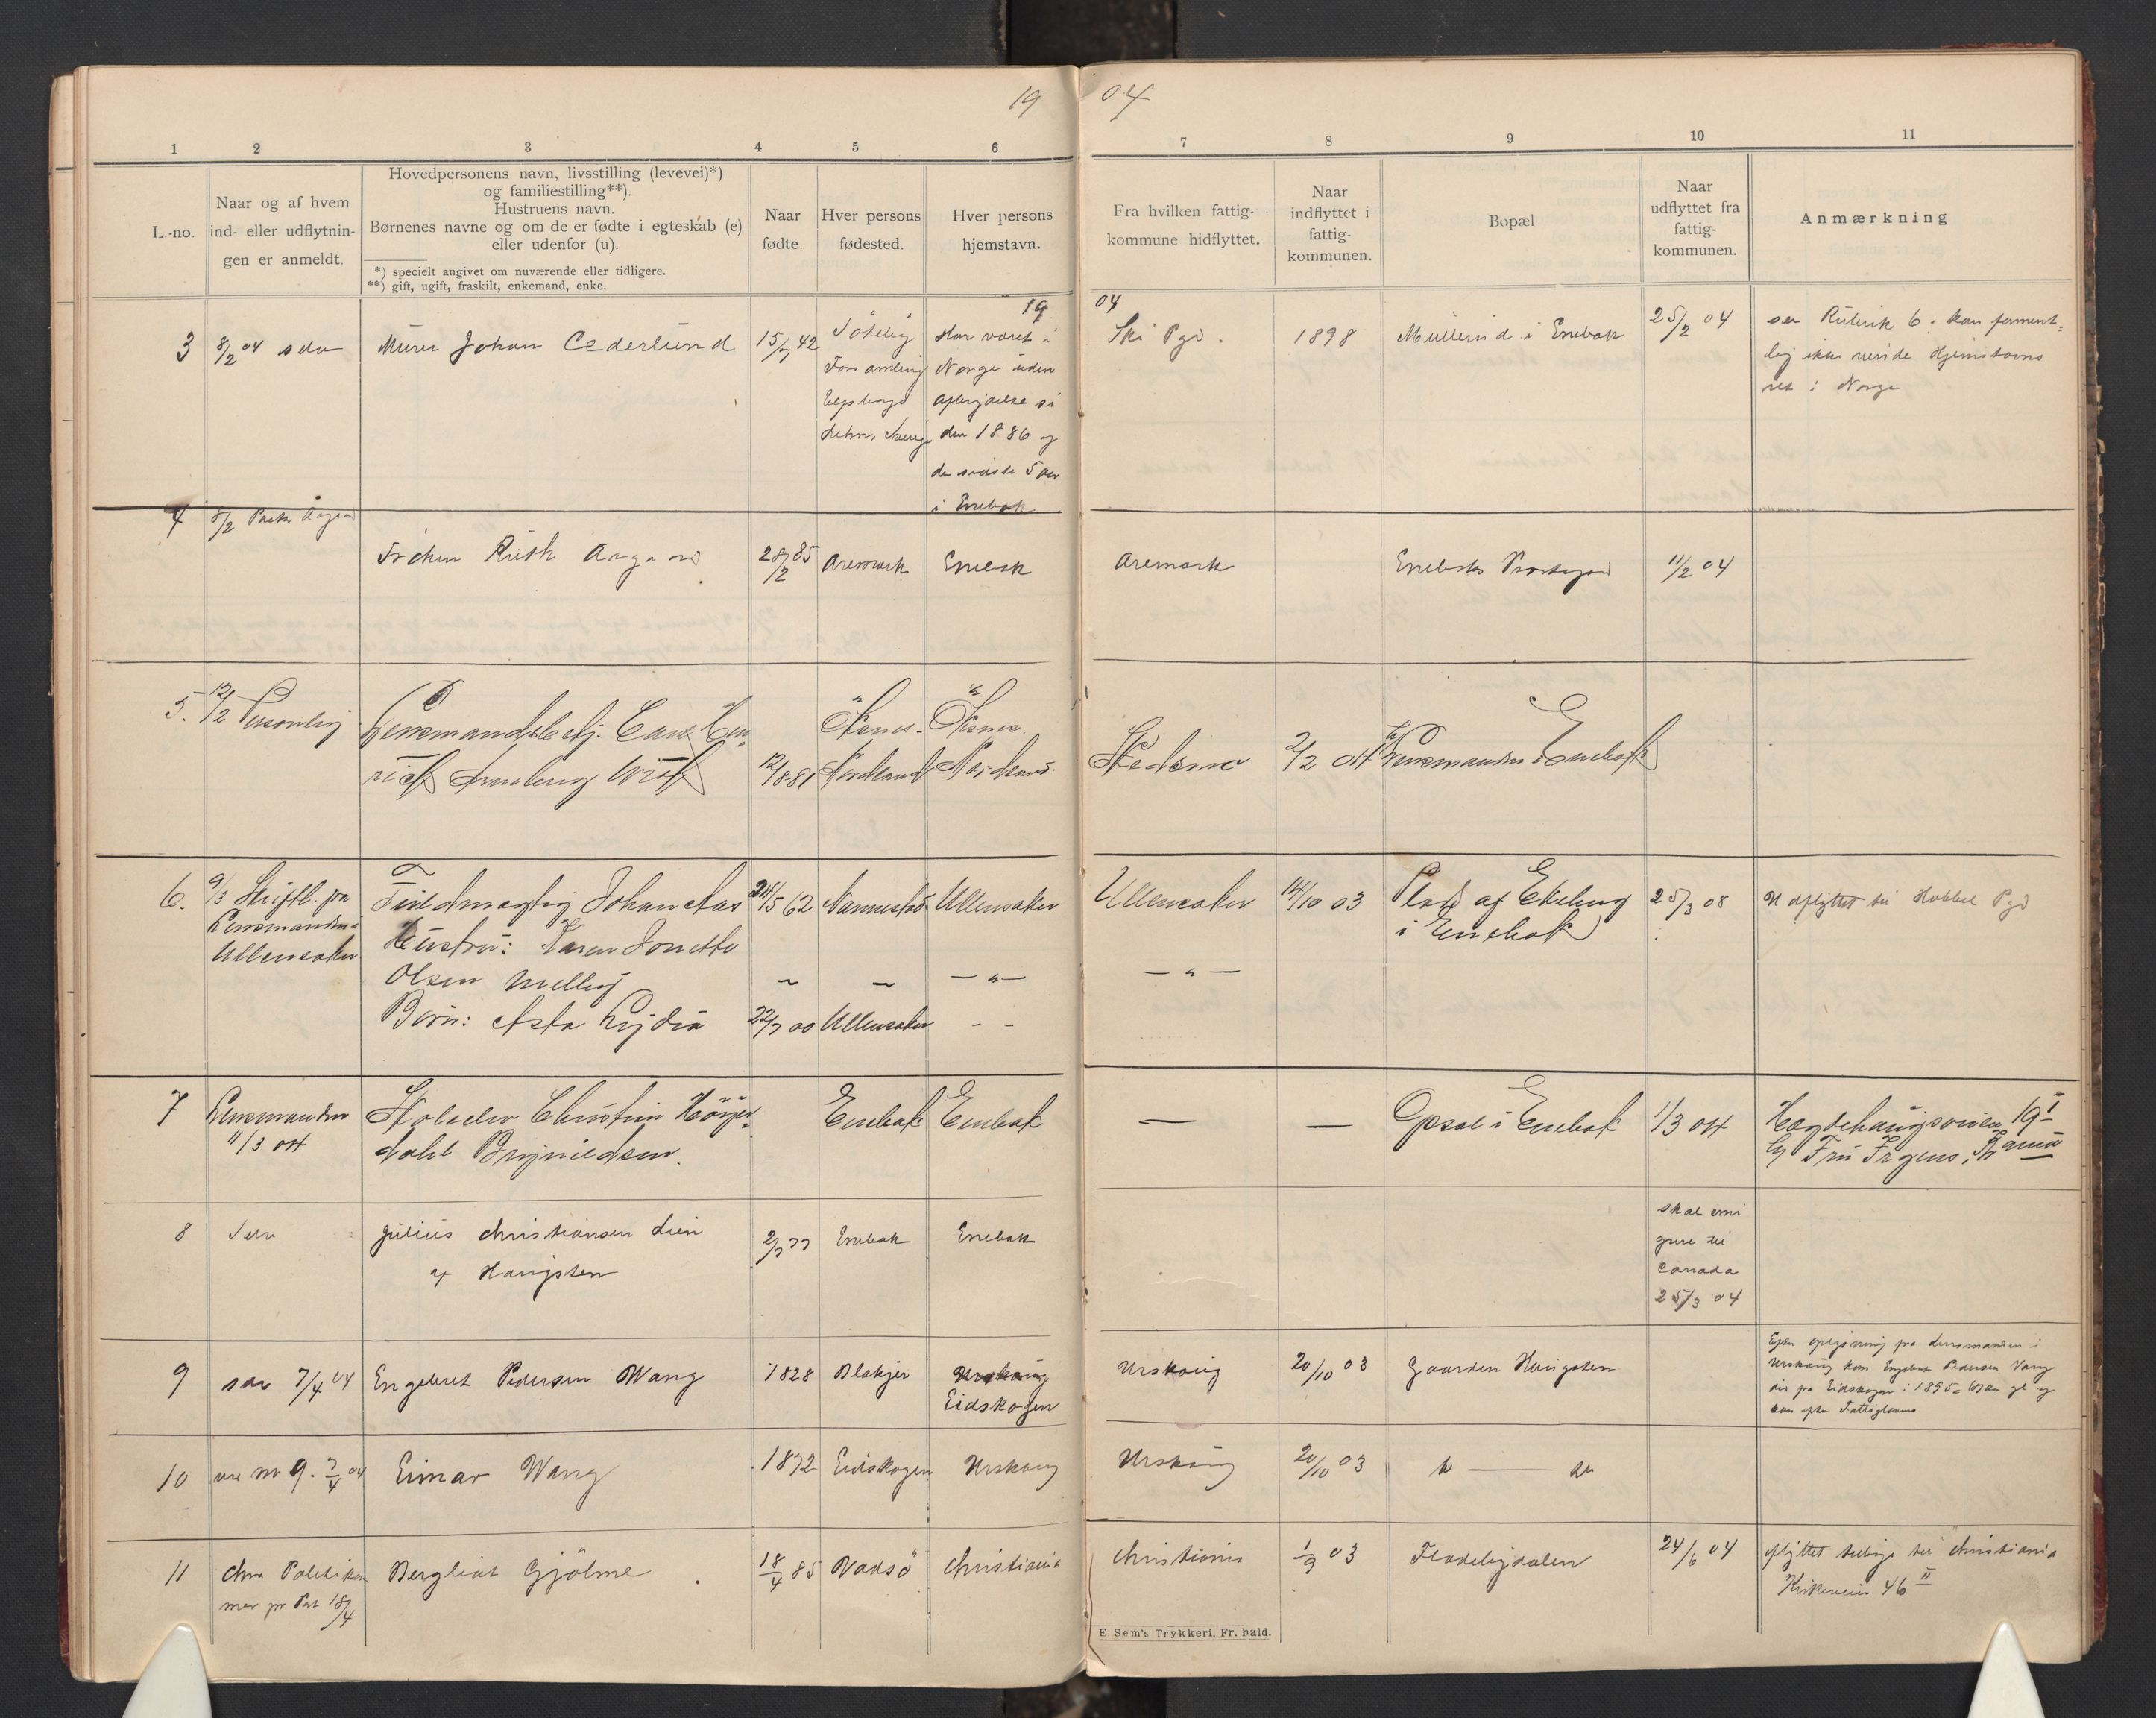 19 04
1 2 3 4 5 6 7 8 9 10 11
L.-no.
Naar og af hvem
ind- eller udflytnin-
gen er anmeldt.
Hovedpersonens navn, livsstilling (levevei)*)
og familiestilling**).
Hustruens navn.
Børnenes navne og om de er fødte i egteskab (e)
eller udenfor (u).
*) specielt angivet om nuværende eller tidligere.
**) gift, ugift, fraskilt, enkemand, enke.
Naar
fødte.
Hver persons
fødested.
Hver persons
hjemstavn.
Fra hvilken fattig-
kommune hidflyttet.
Naar
indflyttet i
fattig-
kommunen.
Bopæl
Naar
udflyttet fra
fattig-
kommunen.
Anmærkning
19 04
3
8/2 04 selv
Murer Johan Cederlund
15/7 42
Forsamling
Elfsborgs
Sverige
Har været i
Norge uden
afbrydelse si
den 1886 og
de sidste 5 aar
i Enebak
Ski Pgd.
1898
i Enebak
25/2 04
se Rubrik 6. kan forment-
lig ikke Hjemstavns
ret i Norge
4
8/2
Frøken Ruth Aagaard
28/2 85
Aremark
Enebak
Aremark
Enebaks Prestegaard
11/2 04
5.
12/2 Personlig
Lensmandsbetj.
12/8 81
Øksnes.
Nordland
Øksnes.
Nordland.
Skedsmo
2/2 04
Lensmanden i Enebak
6.
9/3 Skriftl. fra
Lensmanden i
Ullensaker
Johan Aas
Hustru: Karen Jonette
Olsen Melby
Børn: Asta Lydia
24/5 62
22/7 00
Nannestad
Ullensaker
Ullensaker
— „ —
- -
Ullensaker
— „ —
14/10 03
Plads af Ekeberg
i Enebak
25/3 08
Udflyttet til Hobbel Pgd
7
Lensmanden
11/3 04
Brynildsen.
Enebak
Enebak
—
—
Opsal i Enebak
1/3 04
Hægdehaugsveien 19 I
8
Selv
Julius Christiansen Lien
af Haugsten
2/7 77
Enebak
Enebak
skal emi
grere til
Canada
25/3 04
9
selv 7/4 04
Engebret Pedersen Wang
1828
Blakjer
Urskoug
Eidskogen
Urskoug
20/10 03
Gaarden Haugsten
Efter oplysning fra Lensmanden i
Urskoug kom Engebret Pedersen Vang
did fra Eidskogen i 1895
10
nr 9. 7/4 04
Einar Wang
1872
Eidskogen
Urskoug
Urskoug
20/10 03
do
11
Chra Politikam
mer pr Post 18/4
Bergliot Gjölme
18/4 85
Vadsö
Christiania
Christiania
1/9 03
Fladebydalen
24/6 04
flyttet tilbage til Christiania
Kirkeveien 46 II
E. Sem's Trykkeri, Fr. hald.